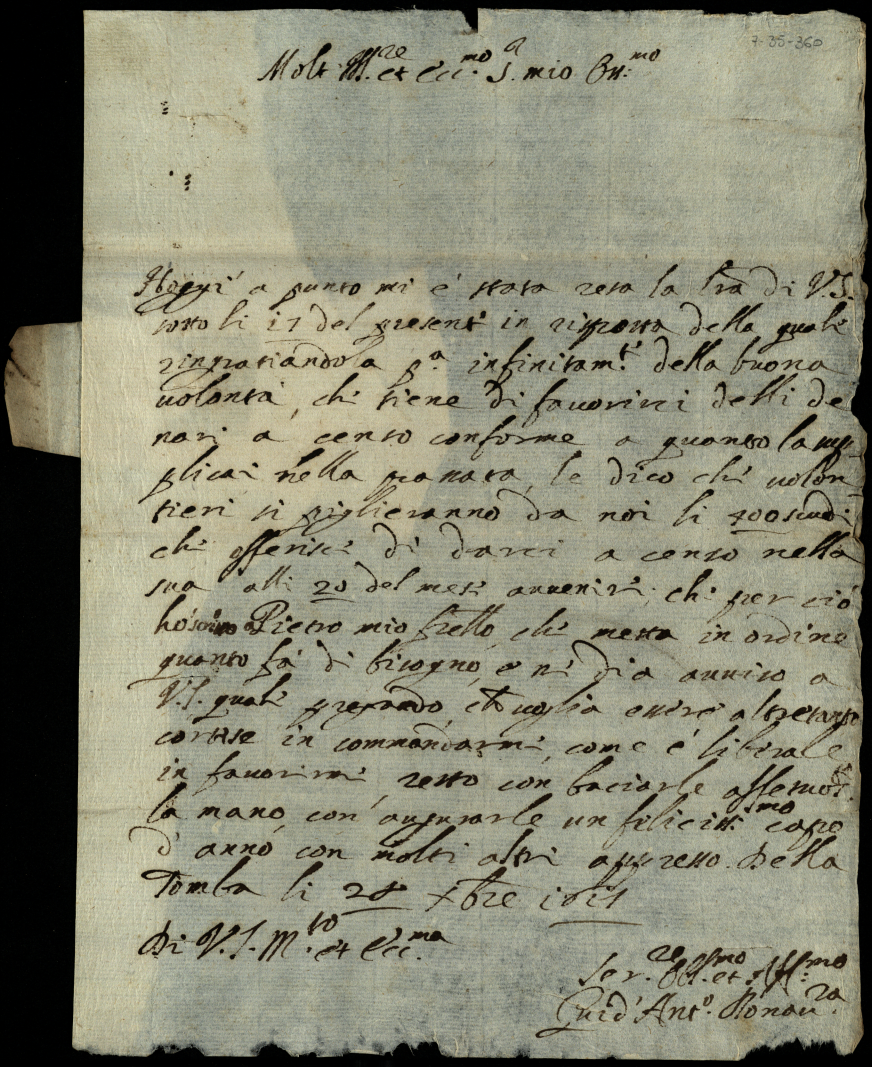 7-35-360
Molt. Ill.re et Ecc.mo S.r mio Oss.mo
Hoggi à punto mi è stata resa la lra di V.S.
sotto li 17 del presente in risposta della quale
ringratiandola p.a infinitam.te della buona
volontà, che tiene di favorirci delli de
nari a censo conforme a quanto la sup-
plicai nella passata, le dico che volon-
tieri si piglieranno da noi li 400 scudi
che offerisce di darci a censo nella
sua alli 20 del mese avvenire, che per ciò
hò scritto a Pietro mio frello, che metta in ordine
quanto fà di bisogno, e ne dia avviso a
V.S. quale pregando, che voglia essere altretanto
cortese in commandarmi, come è liberale
in favorirmi, resto con baciarle affettuos.te
la mano, con augurarle un feliciss.mo capo
d'anno, con molti altri appresso. Della
Tomba li 28 Xbre
Di V.S. M.to et Ecc.ma
Ser.re et Aff.mo
Guid'Ant.o